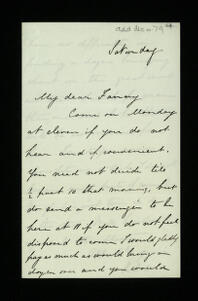 Saturday
My dear Fanny
Come on Monday
at eleven if you do not
hear and if convenient.
You need not decide till
½ past 10 that morning, but
do send a messenger to be
here at 11 if you do not feel
disposed to come I would gladly
pay as much as would bring a
dozen over and you would